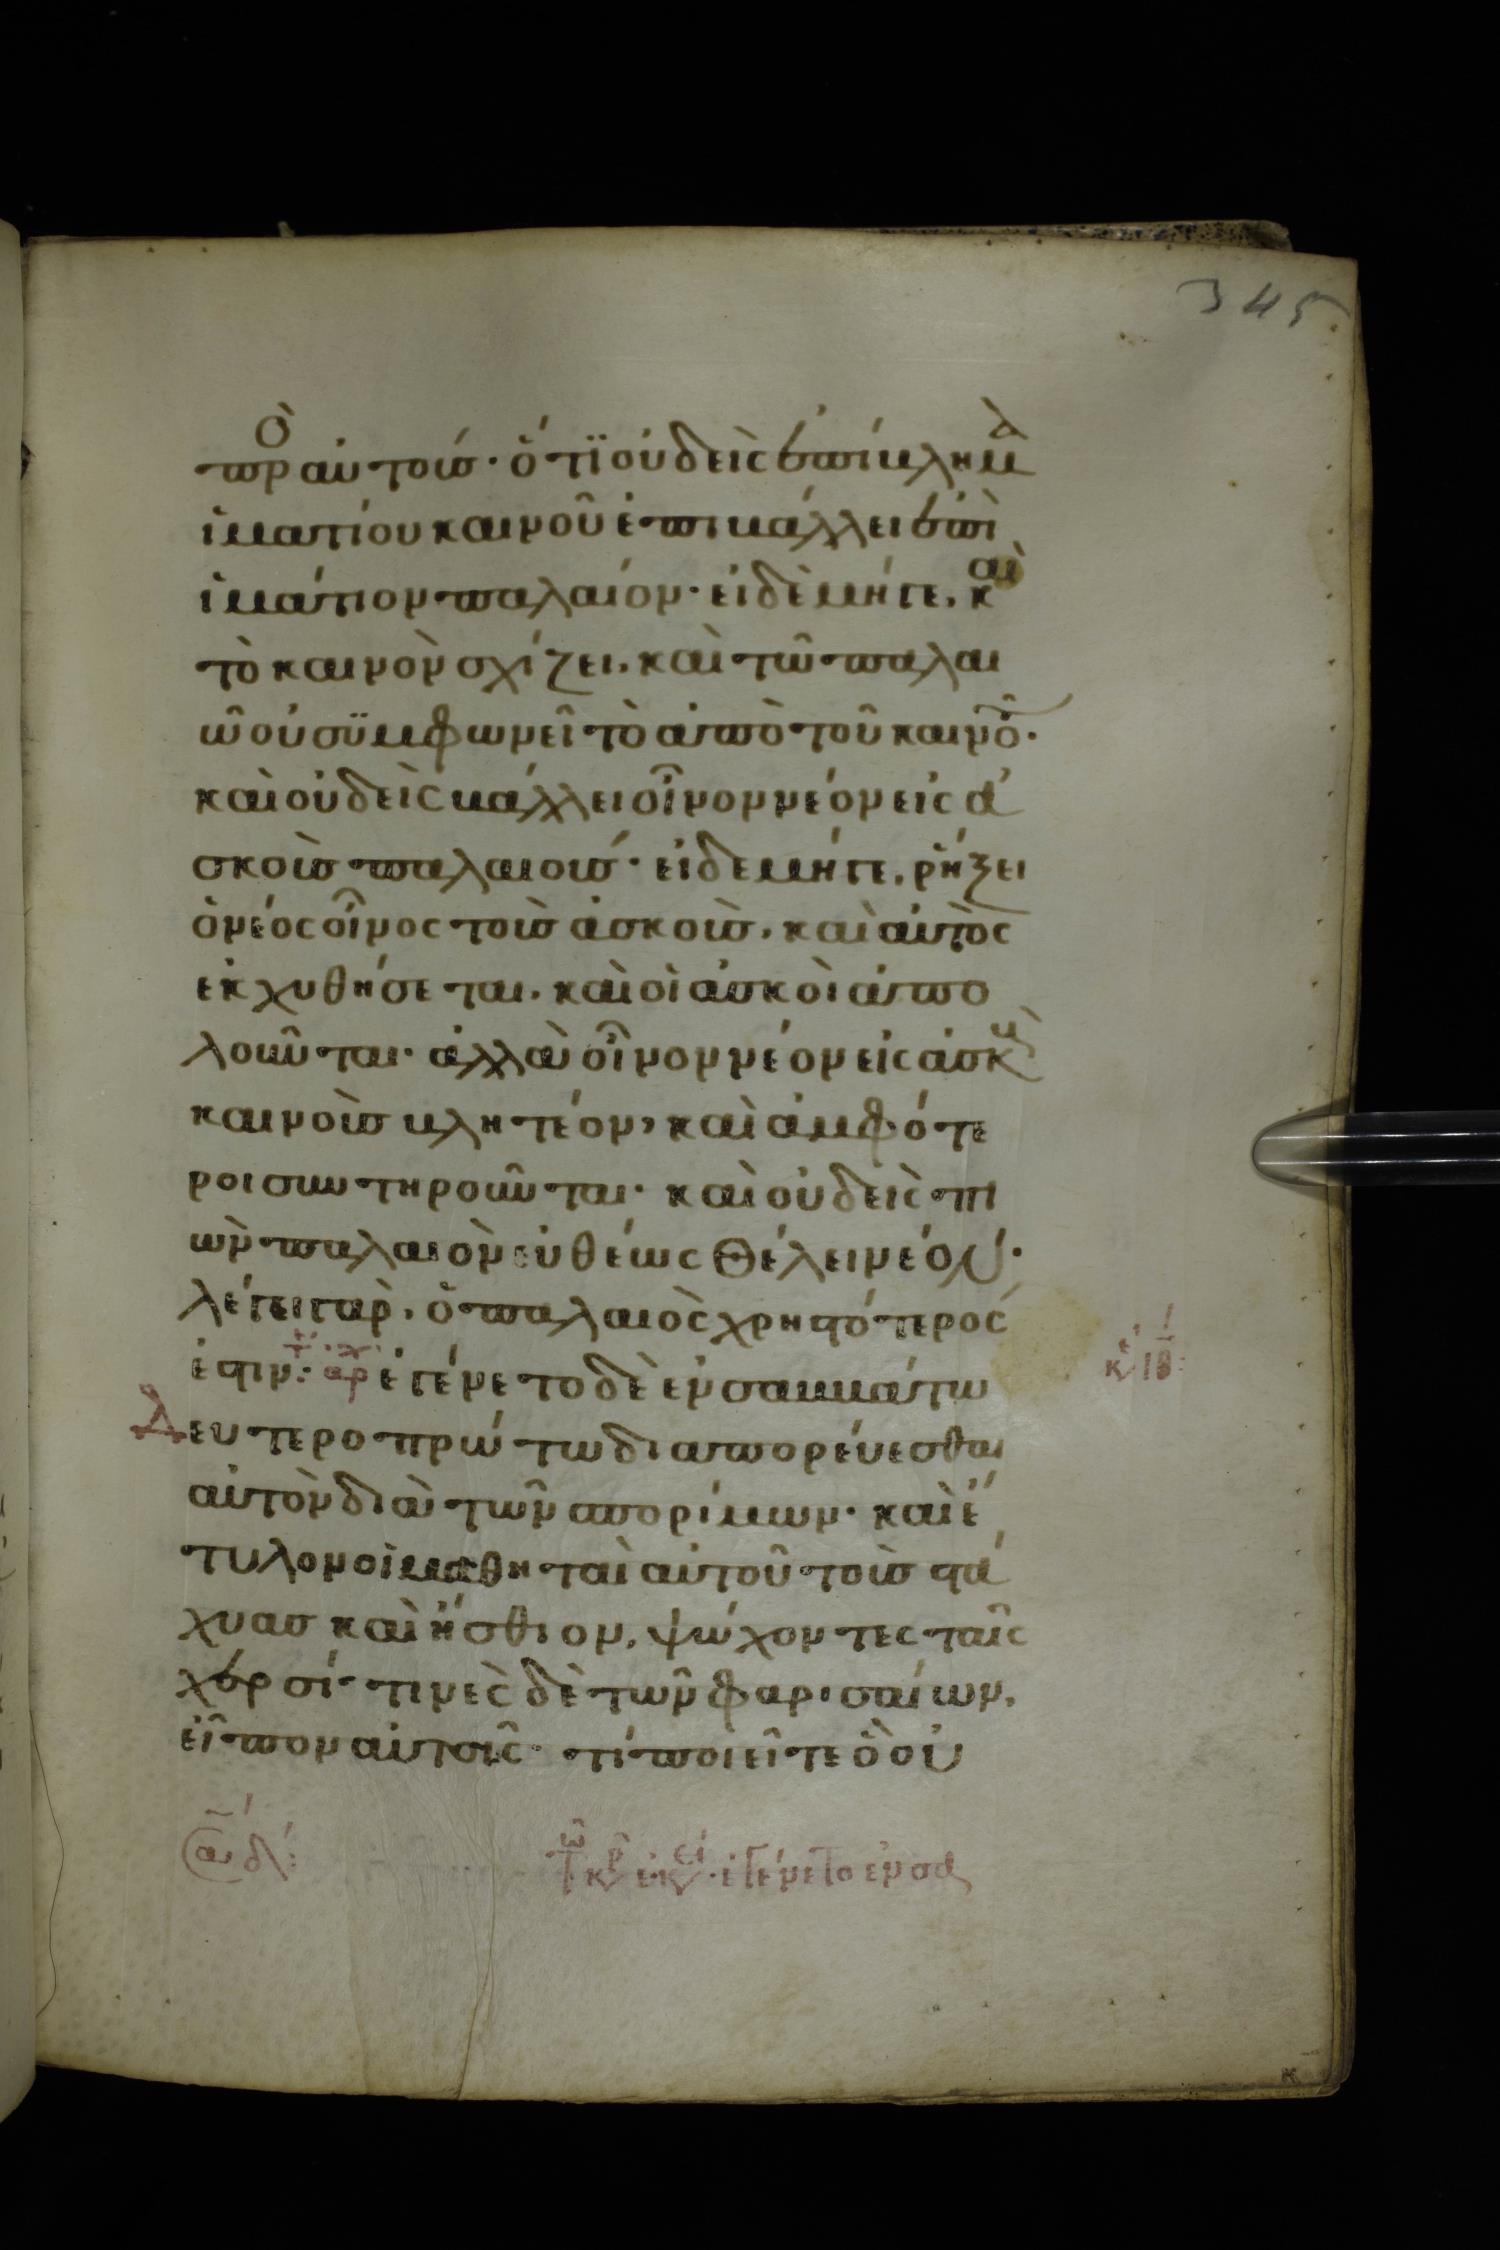 345
προ αὐτούς· ὅτι οὐδεὶς ἐπίβλημα
ἱματίου καινοῦ ἐπιβάλλει ἐπὶ
ἱμάτιον παλαιόν· εἰδὲμήγε, καὶ
τὸ καινὸν σχίζει, καὶ τῶ παλαι
ῶ οὐ συμφωνεῖ τὸ ἀπὸ τοῦ καινοῦ·
καὶ οὐδεὶς βάλλει οἶνον νέον εἰς ἀ
σκοὺς παλαιούς· εἰδεμήγε, ρήξει
ὁ νέος οἶνος τοὺς ἀσκοὺς, καὶ αὐτὸς
ἐκχυθήσεται, καὶ οἱ ἀσκοὶ ἀπο
λοῦνται· ἀλλὰ οἶνον νέον εἰς ἀσκοὺς
καινοὺς βλητέον, καὶ ἀμφότε
ροι συντηροῦνται· καὶ οὐδεὶς πι
ὼν παλαιὸν εὐθέως θέλει νέον·
λέγει γὰρ, ὁ παλαιὸς χρηστότερός
ἐστιν: αρχ ἐγένετο δὲ ἐν σαββάτω
Δευτεροπρώτω διαπορεύεσθαι
αὐτὸν διὰ τῶν σπορίμων· καὶ ἔ
τυλον οἱ μαθηταὶ αὐτοῦ τοὺς στά
χυας καὶ ἤσθιον, ψώχοντες ταῖς
χερσί· τινὲς δὲ τῶν φαρισαίων,
εἶπον αὐτοῖς· τί ποιεῖτε ὃ οὐ
κε ιβ:
Τῶ κρ ἐκείν ἐγένετο ἐν σα